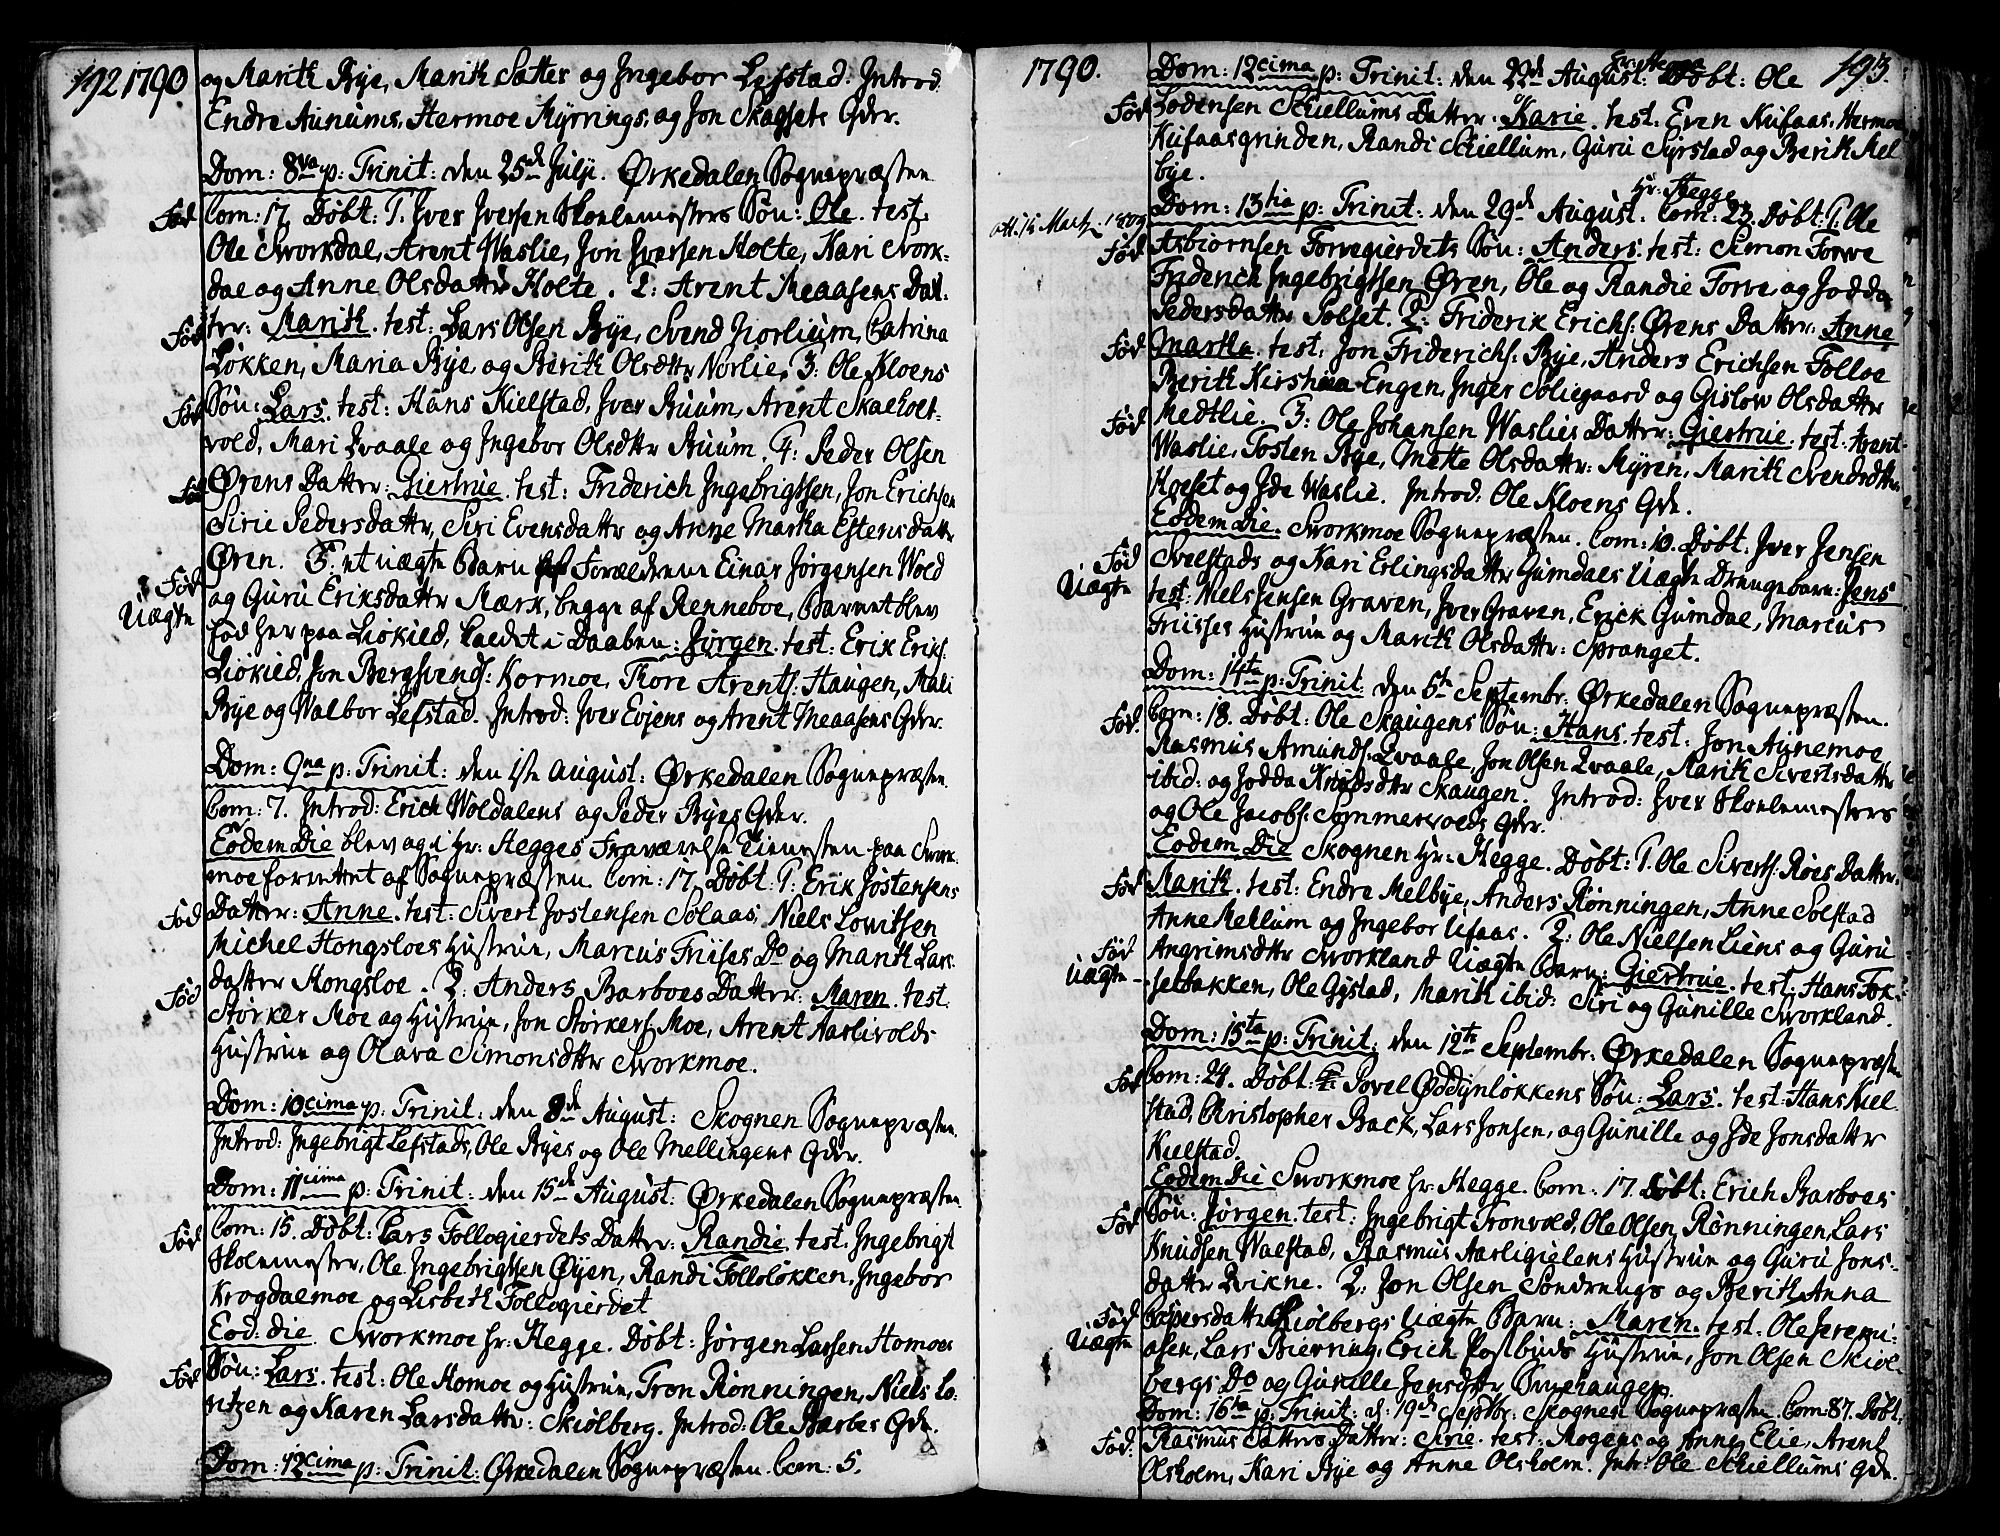 192 1790
og Marith Bye, Marith Sætter og Ingebor Lefstad. Introd.
Endre Aunums, Hermoe Myrrings, og Jon Skagsets Qdr.
Dom: 8va p: Trinit: den 25de Julji. Ørkedalen Sognepræsten
Født
Com: 17. Døbt: 1. Iver Iversen Skolemesters Søn: Ole. test.
Ole Svorkdal, Arent Waslie, Jon Iversen Holte, Kari Svork-
dal og Anne Olsdattr Holte. 2: Arent Meaasens Dat-
Fød
ter: Marith. test: Lars Olsen Bye, Svend Hiorlium, Catrina
Løkken, Maria Bye, og Berith Olsdttr Norlie. 3: Ole Kloens
Fød
Søn: Lars. test: Hans Kielstad, Iver Buum, Arent Skaeholt-
vold, Mari Qvaale og Ingebor Olsdttr Buum. 4: Peder Olsen
Fød
Ørens Datter: Giertrue. test: Friderich Ingebrigtsen, Jon Erichsen
Sirie Pedersdattr, Siri Evensdattr og Anne Martha Estensdattr
Øren. 5. et uægte Barn af Forældrene Einar Jørgensen Wold
Fød
Uægte
og Guru Eriksdattr Mærk, begge af Renneboe, Barnet blev
fød her paa Liøkied, kaldet i Daaben: Jørgen. test: Erik Eriks:
Liøkied, Jon Bergsvends: Kormoe, Thore Arents: Haugen, Mali
Bye og Walbor Lefstad. Introd: Iver Evjens og Arent Meaasens Qdr.
Dom: 9na p: Trinit: den 1ste August: Ørkedalen Sognepræsten.
Com: 7. Introd: Erich Woldalens og Peder Byes Qdr.
Eodem Die blev og i Hr: Hegges Fraværelse Tienesten paa Svork-
moe forrettet af Sognepræsten. Com: 17. Døbt: 1: Erik Jøstensens
Fød
Datter: Anne. test: Sivert Jostensen Solaas, Niels Lowitsen
Michel Hongsloes Hustrue, Marcus Friises Do og Marith Lars-
datter Hongsloe. 2. Anders Barboes Datter: Maren. test.
Fød
Størker Moe og Hustrue, Jon Størkers: Moe, Arent Aarlivolds
Hustrue og Olava Simonsdttr Svorkmoe.
Dom: 10cima p: Trinit: den 8de August: Skognen Sognepræsten.
Introd: Ingebrigt Lefstads, Ole Byes og Ole Mellingens Qdr.
Dom: 11ciima p: Trinit: den 15de August: Ørkedalen Sognepræsten
Fød
Com: 15. Døbt: Lars Follogierdets Datter: Randie. test. Ingebrigt
Skolemester, Ole Ingebrigtsen Øyen, Randi Folloløkken, Ingebor
Krogdalmoe og Lisbeth Follogierdet
Eod: die Svorkmoe Hr: Hegge. Døbt: Jørgen Larsen Homoes
Fød
Søn: Lars. test: Ole Homoe og Hustrue, Tron Rønningen, Niels Lo-
ritzen og Karen Larsdatter: Skiølberg. Introd: Ole Barbes Qdr.
Dom: 12cima p: Trinit: Ørkedalen Sognepræsten. Com: 5.
1790.
193.
Hr: Hegge
Dom: 12cima p: Trinit: den 22de August: Døbt: Ole
Fød
Lodensen Skiellums Datter: Karie. test: Even Kufaas, Hermoe
Kufaasgrinden, Randi Skiellum, Guru Syrstad og Berith Mel-
bye.
Hr: Hegge
Dom: 13tia p: Trinit: den 29de August. Com: 23. Døbt: 1. Ole
Fød
Asbiørnsen Forvegierdets Søn: Anders. test: Simon Forve
Friderich Ingebrigtsen Øren, Ole og Randie Forve, og Jodda
Pedersdattr Solset. 2: Friderik Erichs: Ørens Datter: Anne
Fød
Martha. test: Jon Friderichs: Bye, Anders Erichsen Folloe
Berith Kirstina Engen, Inger Soliegaard og Gislow Olsdattr
Fød
Medtlie. 3: Ole Johansen Waslies Datter: Giertrue. test: Arent
Waslie, Tosten Bye, Mette Olsdattr: Myren, Marith Svendsdttr
Hoeset og Ide Waslie. Introd: Ole Kloens Qdr.
Eodem Die. Svorkmoe Sognepræsten. Com: 10. Døbt: Iver Jensen
Fød
Uægte
Svelstads og Kari Erlingsdattr Gumdals Uægte Drengebarn: Jens
test: Niels Jensen Graven, Iver Graven, Erick Gumdal, Marcus
Friises Hustrue og Marith Olsdattr: Spranget.
Dom: 14ta p: Trinit. den 5te Septembr: Ørkedalen Sognepræsten.
Fød.
Com: 18. Døbt: Ole Skaugens Søn: Hans. test: Jon Aunemoe
Rasmus Amunds: Qvaale, Jon Olsen Qvaale, Marith Sivertsdattr
ibid: og Jodda Knudsdttr Skaugen. Introd: Iver Skolemesters
og Ole Jacobs: Sommervolds Qdr.
Eodem Die Skognen Hr: Hegge. Døbt: 1. Ole Siverts: Røes Datter.
Fød
Marith. test: Endre Melbye, Anders Rønningen, Anne Solstad
Anne Mellum og Ingebor Ufaas. 2: Ole Nielsen Liens og Guru
Fød
Uægte
Angrimsdttr Svorkland Uægte Barn: Giertrue. test: Hans Fok-
setbakken, Ole Gystad, Marith ibid: Siri og Gunille Svorkland.
Dom: 15ta p: Trinit: den 12te Septembr: Ørkedalen Sognepræst
Fød
Com: 24. Døbt: Povel Øddynløkkens Søn: Lars. test: Hans Kiel-
stad, Christopher Back, Lars Jonsen, og Gunille og Ide Jonsdattr
Kielstad.
Eodem Die Svorkmoe Hr: Hegge. Com: 17. Døbt: Erich Barboes
Fød
Søn: Jørgen. test: Ingebrigt Tronvold, Ole Olsen Rønningen, Lars
Knudsen Walstad, Rasmus Aarligielens Hustrue og Guru Jons-
dattr Qvikne. 2. Jon Olsen Sondrungs og Berith Anna
Fød
Uægte
Caspersdattr Skiølbergs Uægte Barn: Maren. test: Ole Jeremi-
asen, Lars Bierring, Erich Postbuds Hustrue, Jon Olsen Skiøl-
bergs Do og Gunille Jensdttr
Dom: 16ta p: Trinit: d: 19de Septbr: Skognen Sognepræsten Com: 87. Døbt.
Fød.
Rasmus Sætters Datter: Sirie. test: Mogens og Anne Elie, Arent
Olsholm, Kari Bye og Anne Olsholm. Intr: Ole Skiellums Qdr.